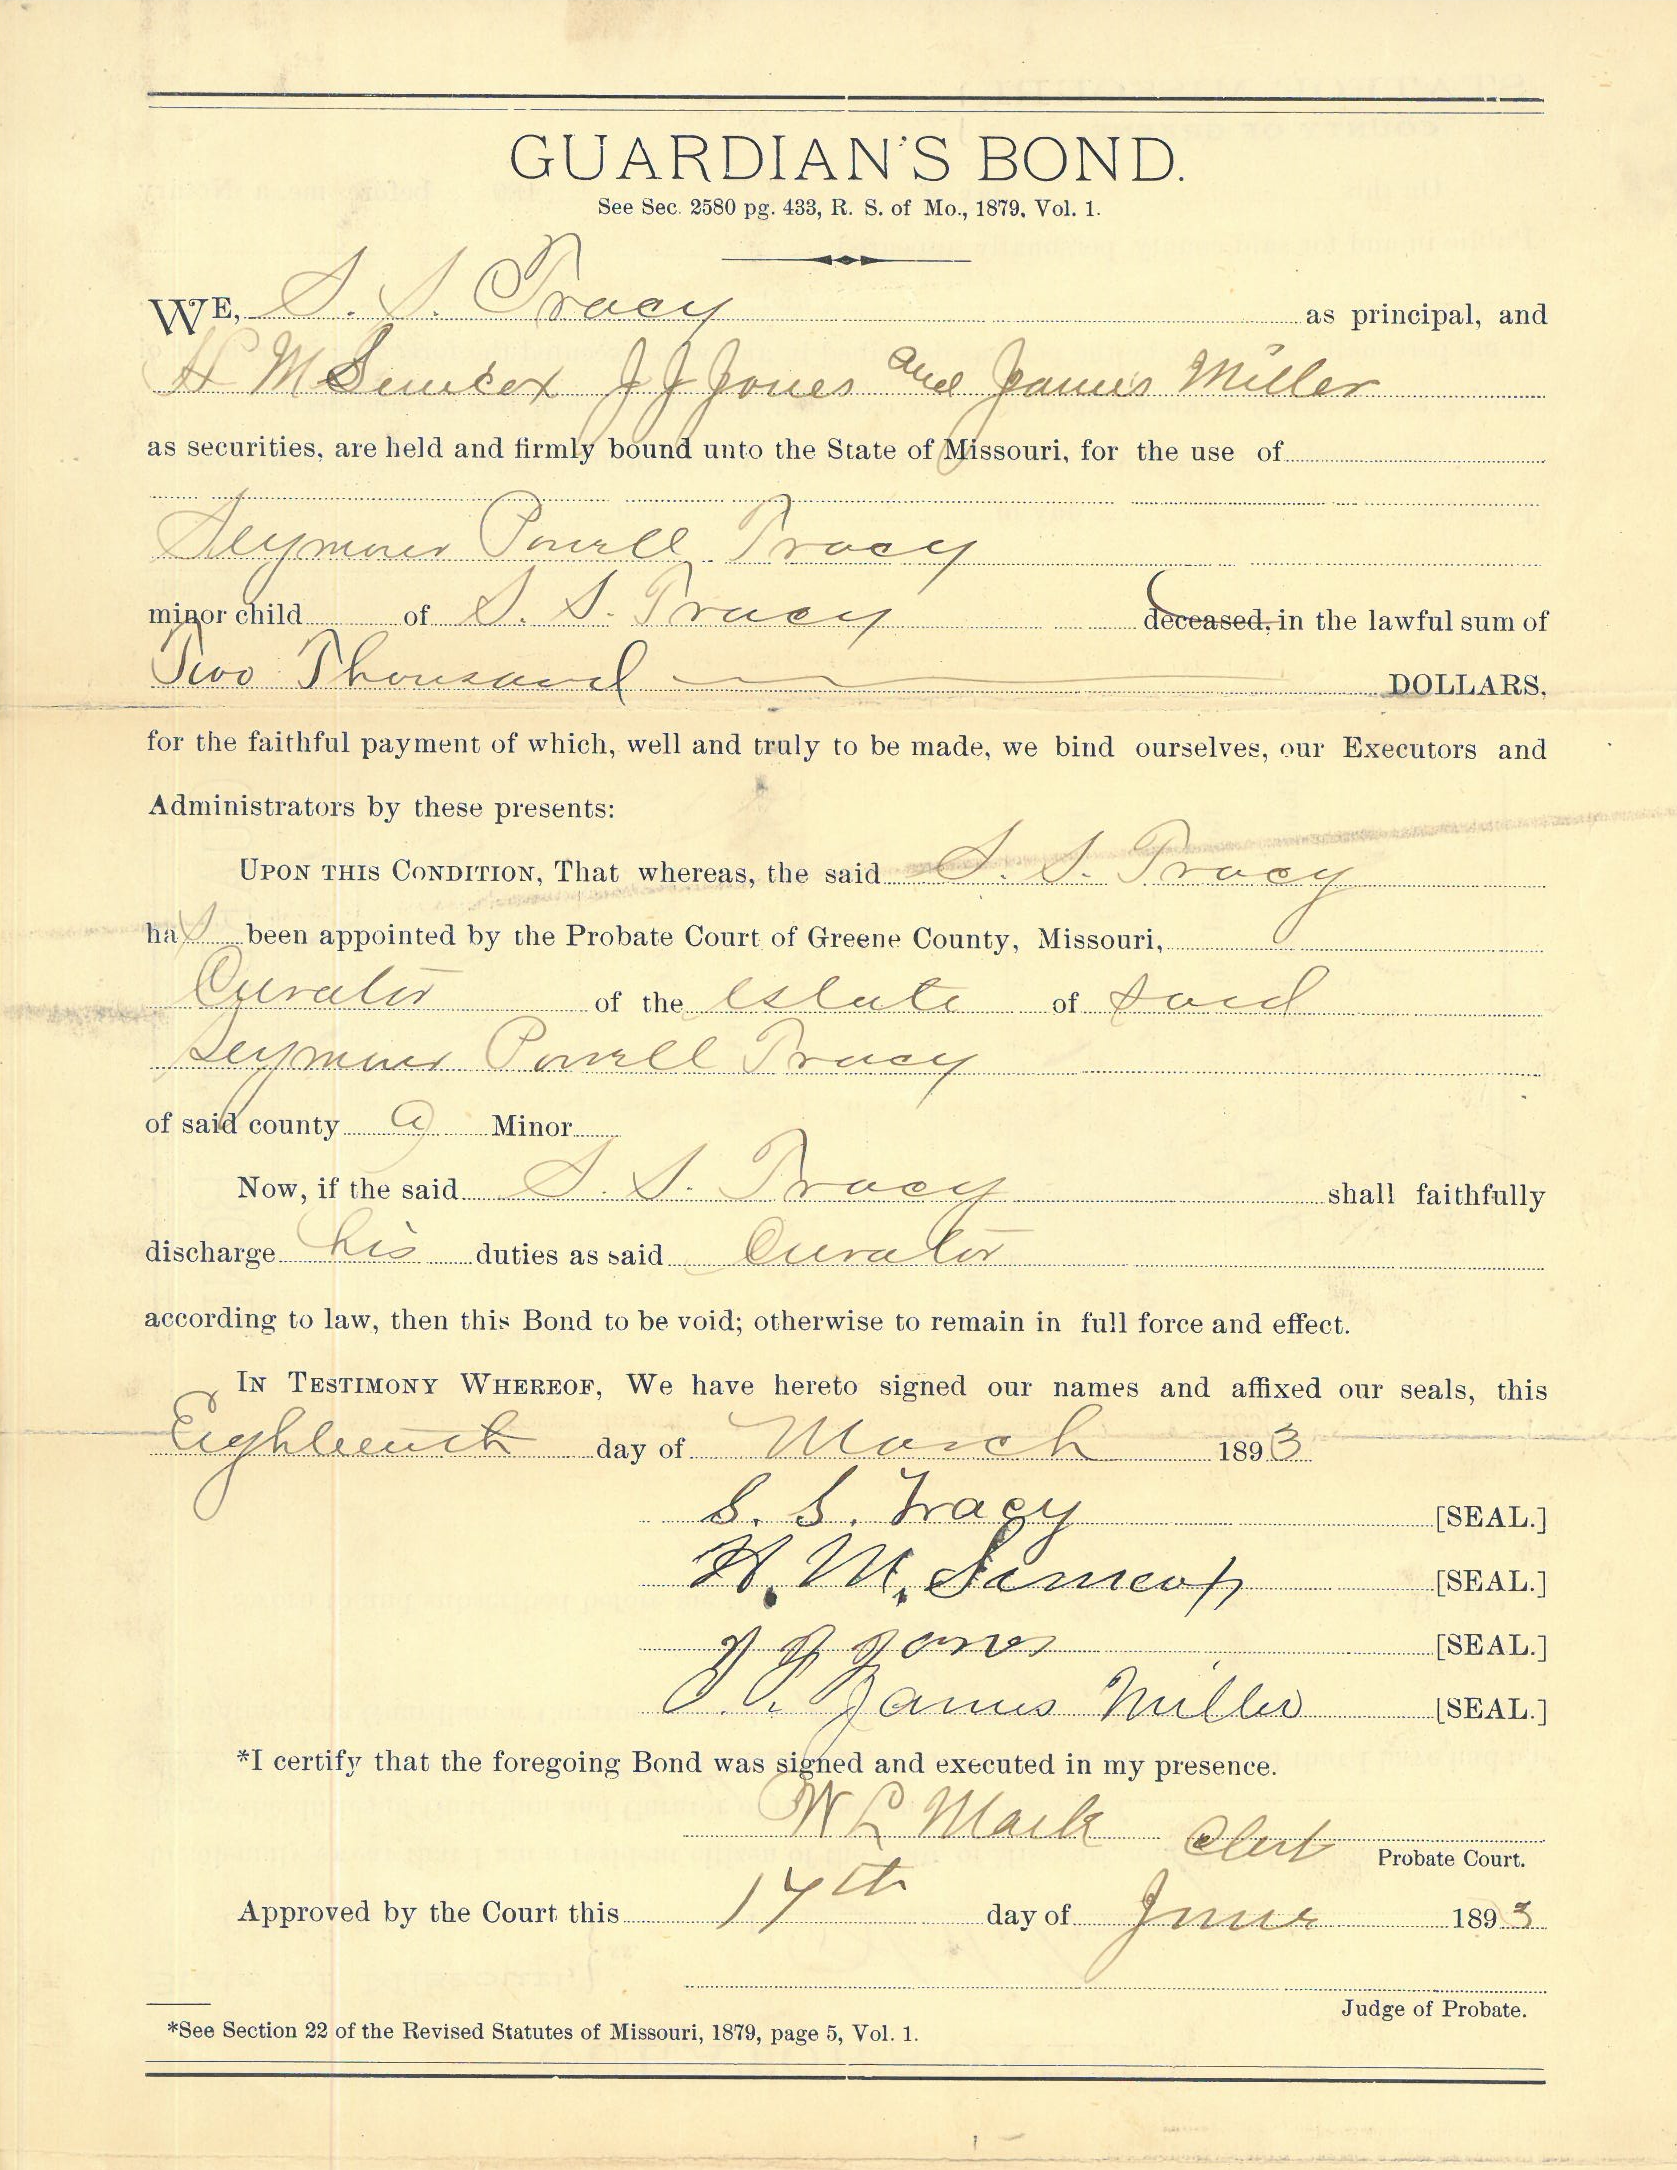 GUARDIAN'S BOND.
See Sec. 2580 pg. 433, R. S. of Mo., 1879, Vol. 1.
WE, S. S. Tracy as principal, and
H M Simcox J J Jones and James Miller
as securities, are held and firmly bound unto the State of Missouri, for the use of
Seymour Powell Tracy
minor child of S. S. Tracy deceased, in the lawful sum of
Two Thousand DOLLARS,
for the faithful payment of which, well and truly to be made, we bind ourselves, our Executors and
Administrators by these presents:
UPON THIS CONDITION, That whereas, the said S. S. Tracy
has been appointed by the Probate Court of Greene County, Missouri,
Curator of the estate of said
Seymour Powell Tracy
of said county a Minor
Now, if the said S. S. Tracy shall faithfully
discharge his duties as said Curator
according to law, then this Bond to be void; otherwise to remain in full force and effect.
IN TESTIMONY WHEREOF, We have hereto signed our names and affixed our seals, this
Eighteenth day of March 1893
S. S. Tracy [SEAL.]
H. M. Simcox [SEAL.]
J J Jones [SEAL.]
James Miller [SEAL.]
*I certify that the foregoing Bond was signed and executed in my presence.
W L Mack Clerk
Probate Court.
Approved by the Court this 17th day of June 1893
Judge of Probate.
*See Section 22 of the Revised Statutes of Missouri, 1879, page 5, Vol. 1.